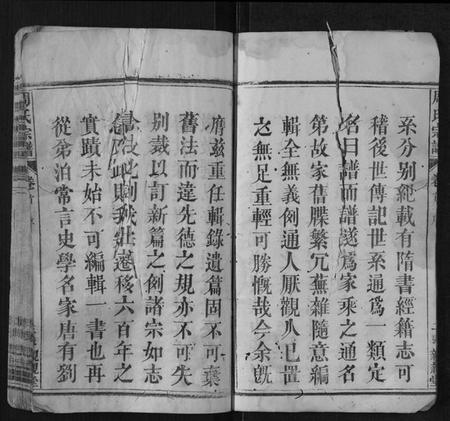 系分別紀載有隋書經籍志可
稽後世傳記世系通爲一類定
名曰譜而譜遂爲家乘之通名
第故家舊牒繁冗蕪雜隨意編
輯全無義例通人厭觀久已置
之無足重輕可勝慨哉今余旣
膺茲重任輯錄遺篇固不可棄
舊法而違先德之規亦不可失
別裁以訂新篇之例諸宗如志
遷移六百年之
實蹟未始不可編輯一書也再
從弟泊常言史學名家唐有劉
周氏宗譜